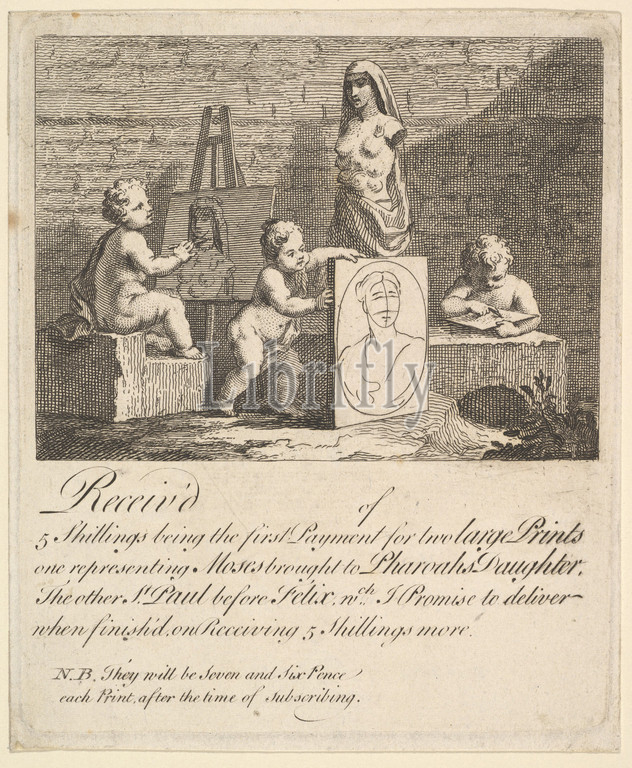 Librifly
Receiv'd of
5 Shillings being the first Payment for two large Prints
one representing Moses brought to Pharoah's Daughter.
The other St. Paul before Felix, wch. I Promise to deliver
when finish'd, on Receiving 5 Shillings more.
N.B. They will be Seven and Six Pence
each Print, after the time of Subscribing.